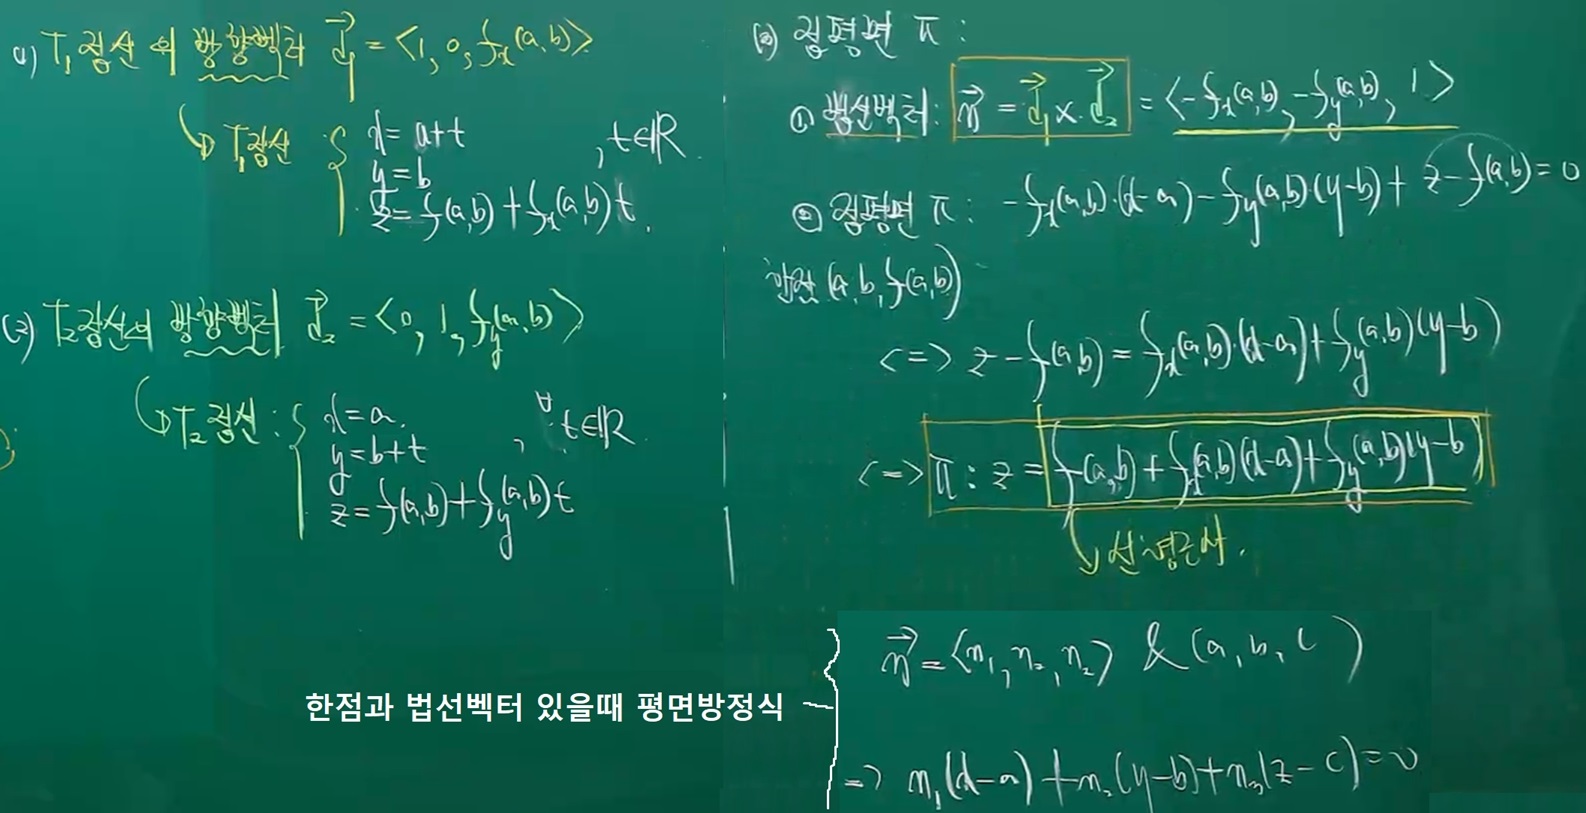 (1) T₁접선의 방향벡터 d₁ = <1, 0, fx(a,b)>
↳ T₁접선 { x = a+t , t∈ℝ
y = b
z = f(a,b) + fx(a,b) t
(2) T₂접선의 방향벡터 d₂ = <0, 1, fy(a,b)>
↳ T₂접선 : { x = a , ∀t∈ℝ
y = b+t
z = f(a,b) + fy(a,b) t
(3) 접평면 π :
① 법선벡터 : n = d₁ × d₂ = <-fx(a,b), -fy(a,b), 1>
② 접평면 π : -fx(a,b)·(x-a) - fy(a,b)·(y-b) + z - f(a,b) = 0
한점 (a, b, f(a,b))
<=> z - f(a,b) = fx(a,b)·(x-a) + fy(a,b)(y-b)
<=> π : z = f(a,b) + fx(a,b)(x-a) + fy(a,b)(y-b)
↳ 선형근사.
n = <n₁, n₂, n₂> & (a, b, c)
한점과 법선벡터 있을때 평면방정식
=> n₁(x-a) + n₂(y-b) + n₃(z-c) = 0